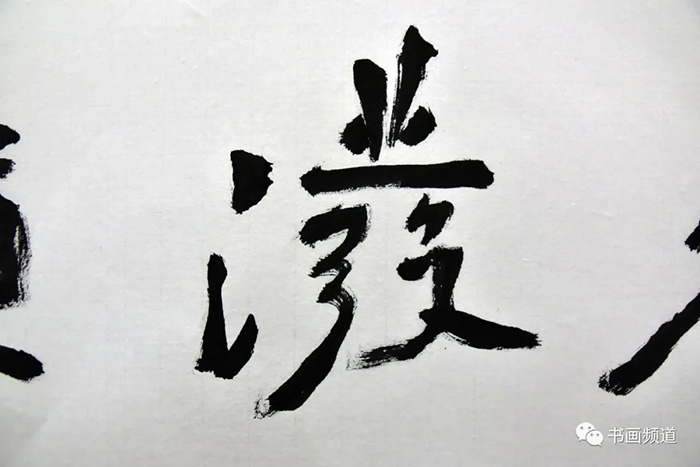 潑
书画频道